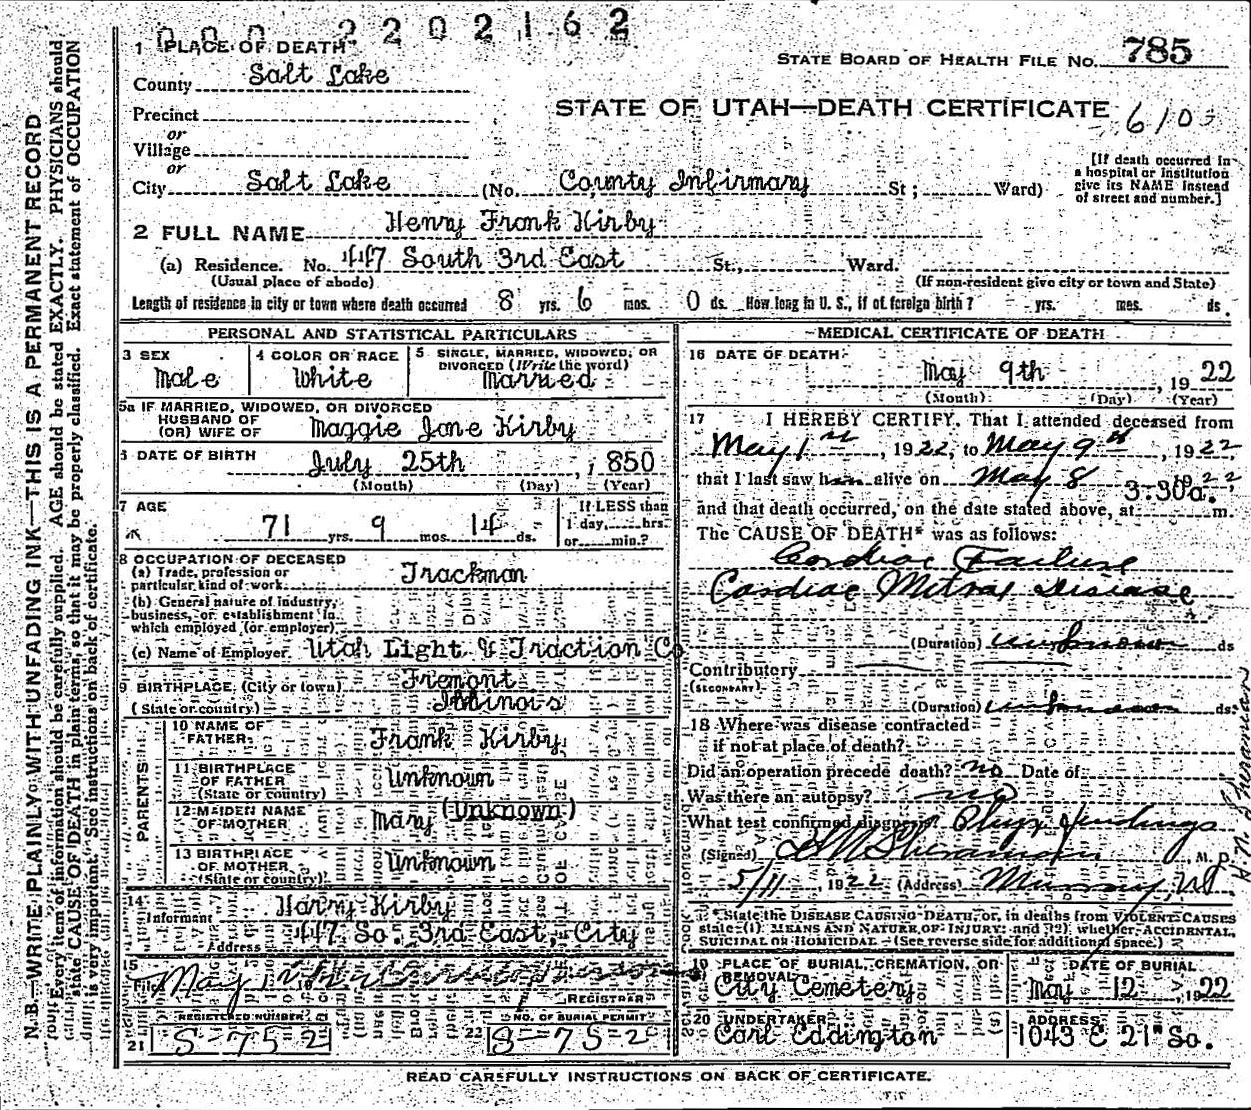 0002202162
1 PLACE OF DEATH
STATE BOARD OF HEALTH FILE NO. 785
County Salt Lake
STATE OF UTAH—DEATH CERTIFICATE
Precinct
or
Village
or
City Salt Lake (No. County Infirmary St; Ward)
[If death occurred in
a hospital or institution
give its NAME instead
of street and number.]
2 FULL NAME Henry Frank Kirby
(a) Residence. No. 447 South 3rd East St., Ward.
(Usual place of abode) (If non-resident give city or town and State)
Length of residence in city or town where death occurred 8 yrs. 6 mos. 0 ds. How long in U. S., if of foreign birth? yrs. mos. ds.
PERSONAL AND STATISTICAL PARTICULARS
3 SEX
Male
4 COLOR OR RACE
White
5 SINGLE, MARRIED, WIDOWED, OR
DIVORCED (Write the word)
Married
5a IF MARRIED, WIDOWED, OR DIVORCED
HUSBAND OF
(OR) WIFE OF Maggie Jane Kirby
6 DATE OF BIRTH July 25th, 1850
(Month) (Day) (Year)
7 AGE
71 yrs. 9 mos. 14 ds.
If LESS than
1 day, hrs.
or min.?
8 OCCUPATION OF DECEASED
(a) Trade, profession or
particular kind of work Trackman
(b) General nature of industry,
business, or establishment in
which employed (or employer)
(c) Name of Employer. Utah Light & Traction Co
9 BIRTHPLACE (City or town) Fremont
(State or country) Illinois
PARENTS
10 NAME OF
FATHER Frank Kirby
11 BIRTHPLACE
OF FATHER Unknown
(State or country)
12 MAIDEN NAME
OF MOTHER Mary (Unknown)
13 BIRTHPLACE
OF MOTHER Unknown
(State or country)
14
Informant Harry Kirby
Address 447 So. 3rd East, City
15
Filed May
REGISTRAR
REGISTERED NUMBER
21 S-752
NO. OF BURIAL PERMIT
22 S-752
MEDICAL CERTIFICATE OF DEATH
16 DATE OF DEATH
May 9th, 1922
(Month) (Day) (Year)
17 I HEREBY CERTIFY, That I attended deceased from
May 1st, 1922, to May 9th, 1922
that I last saw him alive on May 8 1922
and that death occurred, on the date stated above, at 3:30a. m.
The CAUSE OF DEATH* was as follows:
Cardiac Failure
Cardiac Mitral Disease
(Duration) unknown ds
Contributory
(SECONDARY)
(Duration) unknown ds.
18 Where was disease contracted
if not at place of death?
Did an operation precede death? no Date of
Was there an autopsy? no
What test confirmed diagnosis? Phys findings
(Signed) M. D.
5/11, 1922 (Address) Murray, Ut
*State the DISEASE CAUSING DEATH, or, in deaths from VIOLENT CAUSES
state (1) MEANS AND NATURE OF INJURY; and (2) whether ACCIDENTAL,
SUICIDAL OR HOMICIDAL. (See reverse side for additional space.)
19 PLACE OF BURIAL, CREMATION, OR
REMOVAL
City Cemetery
DATE OF BURIAL
May 12, 1922
20 UNDERTAKER
Carl Eddington
ADDRESS
1043 E 21st So.
READ CAREFULLY INSTRUCTIONS ON BACK OF CERTIFICATE.
N.B.—WRITE PLAINLY WITH UNFADING INK—THIS IS A PERMANENT RECORD
Every item of information should be carefully supplied. AGE should be stated EXACTLY. PHYSICIANS should
state CAUSE OF DEATH in plain terms, so that it may be properly classified. Exact statement of OCCUPATION
is very important. See instructions on back of certificate.